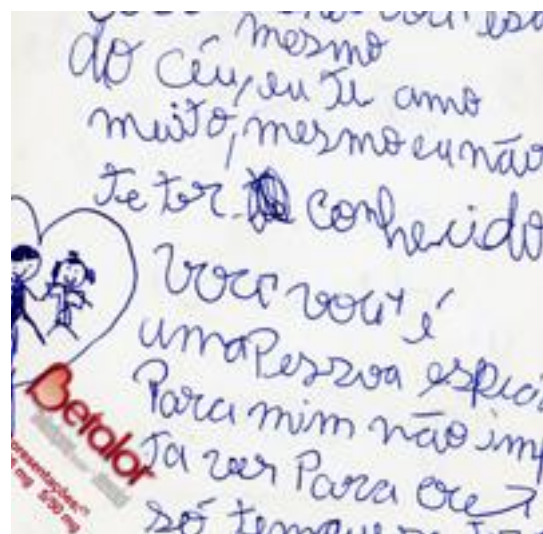 mesmo
do céu, eu Te amo
muito, mesmo eu não
Te ter conhecido
você você é
uma Pessoa espec
Para mim não imp
Ta ver Para cre
só temque
Betalor
presentações:
5/50 mg